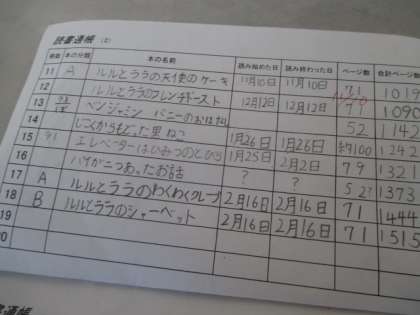 読書通帳 (上)
冊数 本の分類 本の名前 読み始めた日 読み終わった日 ページ数 合計ページ数
11 A ルルとララの天使のケーキ 11月10日 11月10日 71 1019
12 ルルとララのフレンチトースト 12月12日 12月12日 1090
13 ベンジャミン バニーのおはなし 52 1142
14 じごくからもどった男 1月26日 1月26日 約100 1242
15 エレベーターはひみつのとびら 1月25日 2月2日 79 1321
16 パイがふたつあったお話 ? ? 52? 1373
17 A ルルとララのわくわくクレープ 2月16日 2月16日 71 1444
18 B ルルとララのシャーベット 2月16日 2月16日 71 1515
19
20